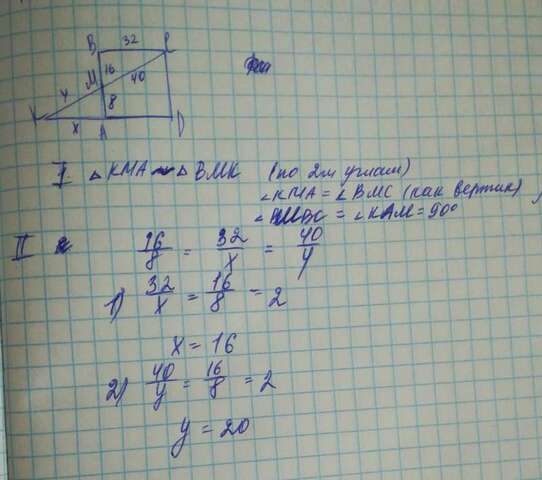 B 32 P
M 16 40
y 8
K x A D
I △KMA ~ △BMK (по 2м углам)
∠KMA = ∠BMC (как вертик),
∠MBC = ∠KAM = 90°
II 16/8 = 32/x = 40/y
1) 32/x = 16/8 = 2
x = 16
2) 40/y = 16/8 = 2
y = 20